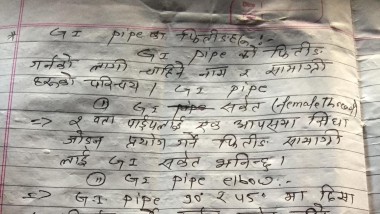 * GI pipe का फिटीङहरू :-
GI pipe को फिटीङ
गर्नको लागी चाहिने नाम र सामाग्री
हरूको परिचय । GI pipe
सकेत (female thread)
=> २ वटा पाईपलाई एक आपसमा सिधा
जोड्न प्रयोग गर्ने फिटीङ सामाग्री
लाई GI सकेत भनिन्छ ।
GI pipe elbow :-
=> GI pipe 90° र 45° मा दिशा